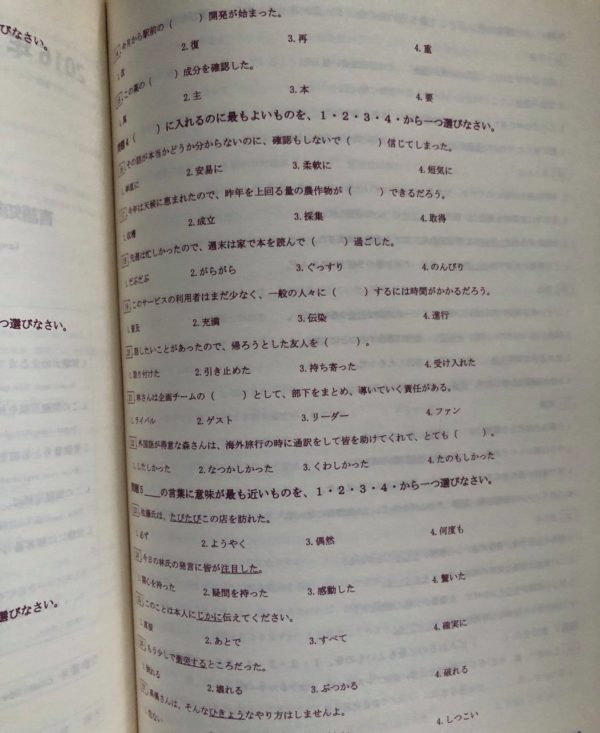 びなさい。
2016年
今月から駅前の（　　）開発が始まった。
1.改　2.復　3.再　4.重
この薬の（　　）成分を確認した。
1.真　2.主　3.本　4.要
問題4（　　）に入れるのに最もよいものを、1・2・3・4・から一つ選びなさい。
その話が本当かどうか分からないのに、確認もしないで（　　）信じてしまった。
2.安易に　3.柔軟に　4.短気に
17 今年は天候に恵まれたので、昨年を上回る量の農作物が（　　）できるだろう。
1.収穫　2.成立　3.採集　4.取得
18 先週は忙しかったので、週末は家で本を読んで（　　）過ごした。
1.だぶだぶ　2.がらがら　3.ぐっすり　4.のんびり
つ選びなさい。
19 このサービスの利用者はまだ少なく、一般の人々に（　　）するには時間がかかるだろう。
1.普及　2.充満　3.伝染　4.進行
20 話したいことがあったので、帰ろうとした友人を（　　）。
1.取り付けた　2.引き止めた　3.持ち寄った　4.受け入れた
21 林さんは企画チームの（　　）として、部下をまとめ、導いていく責任がある。
1.ライバル　2.ゲスト　3.リーダー　4.ファン
22 外国語が得意な森さんは、海外旅行の時に通訳をして皆を助けてくれて、とても（　　）。
1.したしかった　2.なつかしかった　3.くわしかった　4.たのもしかった
問題5＿＿の言葉に意味が最も近いものを、1・2・3・4・から一つ選びなさい。
23 佐藤氏は、たびたびこの店を訪れた。
1.必ず　2.ようやく　3.偶然　4.何度も
24 今日の林氏の発言に皆が注目した。
1.関心を持った　2.疑問を持った　3.感動した　4.驚いた
25 このことは本人にじかに伝えてください。
2.あとで　3.すべて　4.確実に
選びなさい。
26 もう少しで衝突するところだった。
1.倒れる　2.壊れる　3.ぶつかる　4.破れる
27 高橋さんは、そんなひきょうなやり方はしませんよ。
1.危ない　4.しつこい